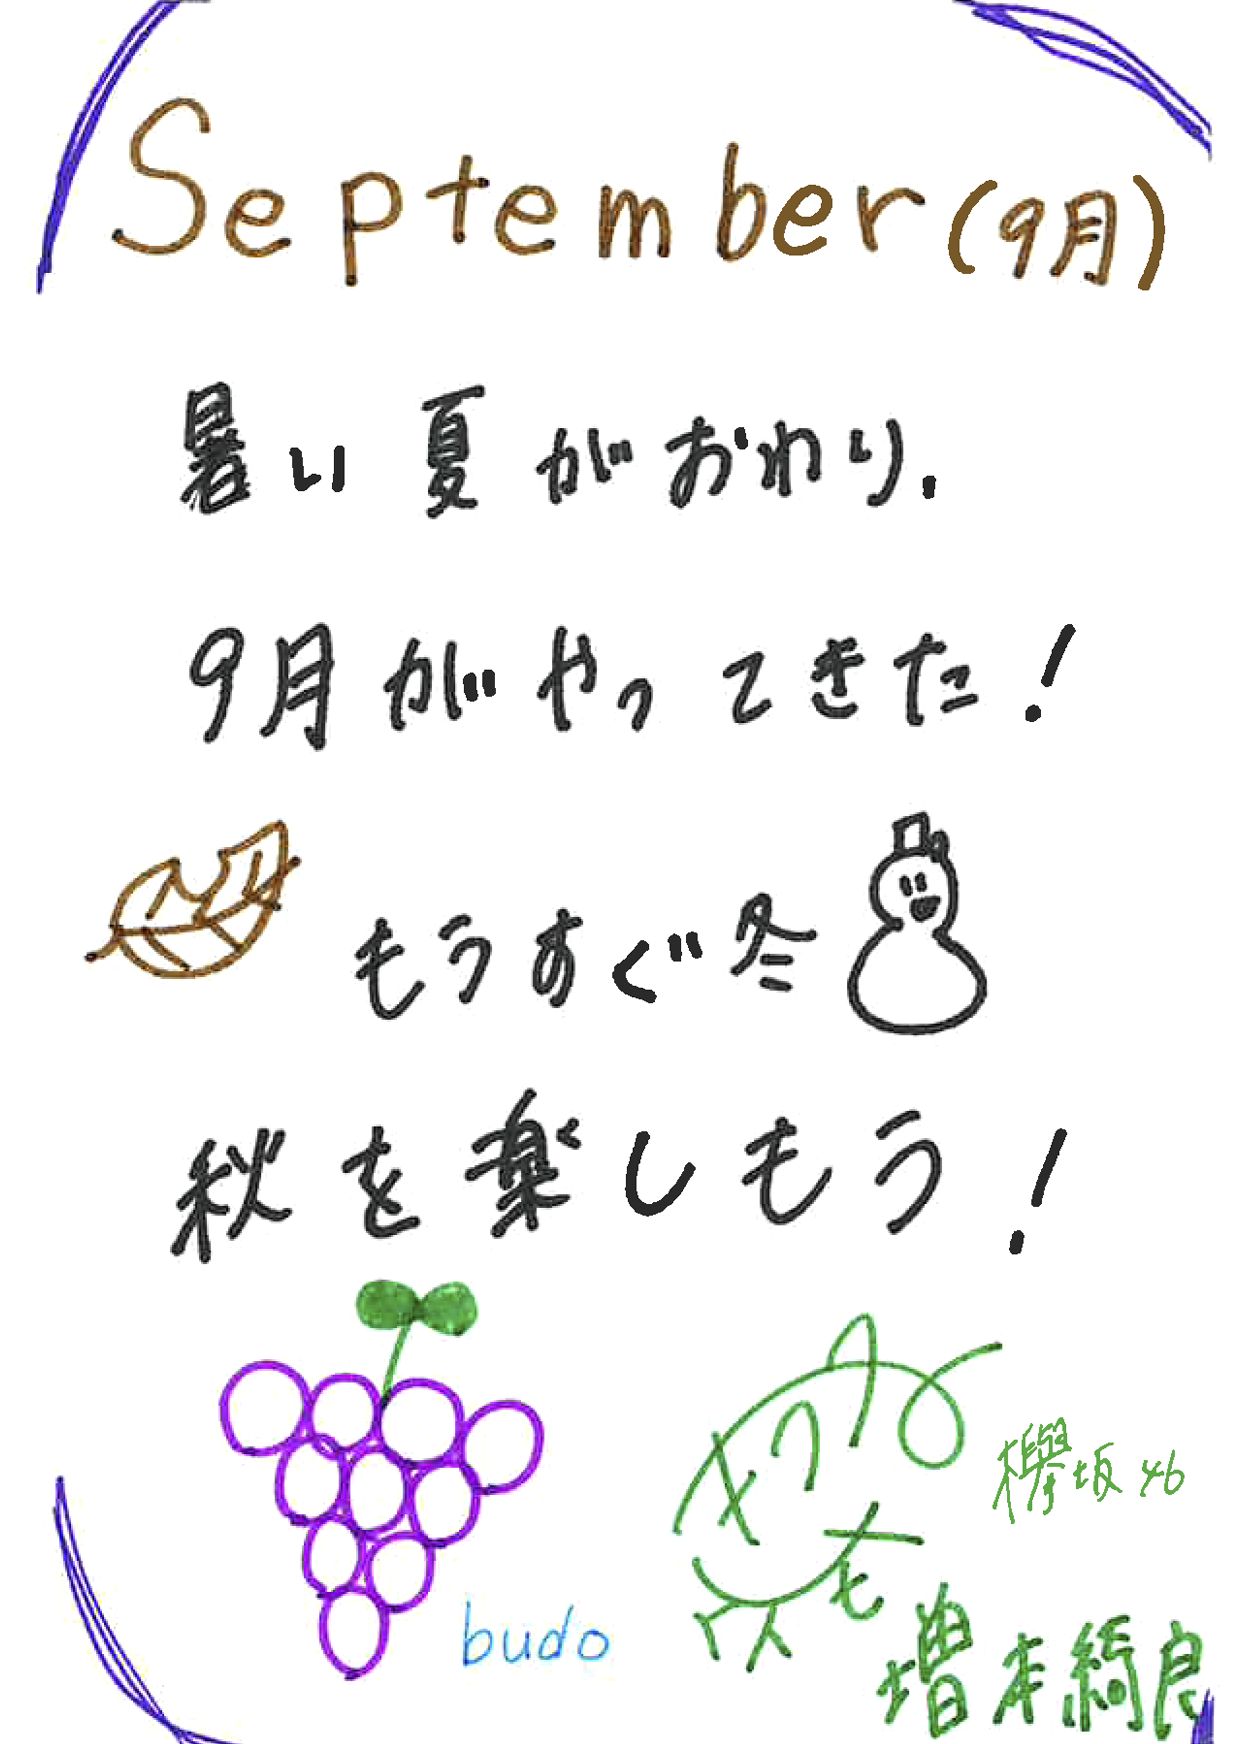 September(9月)
暑い夏がおわり、
9月がやってきた!
もうすぐ冬
秋を楽しもう!
budo
欅坂46
増本綺良